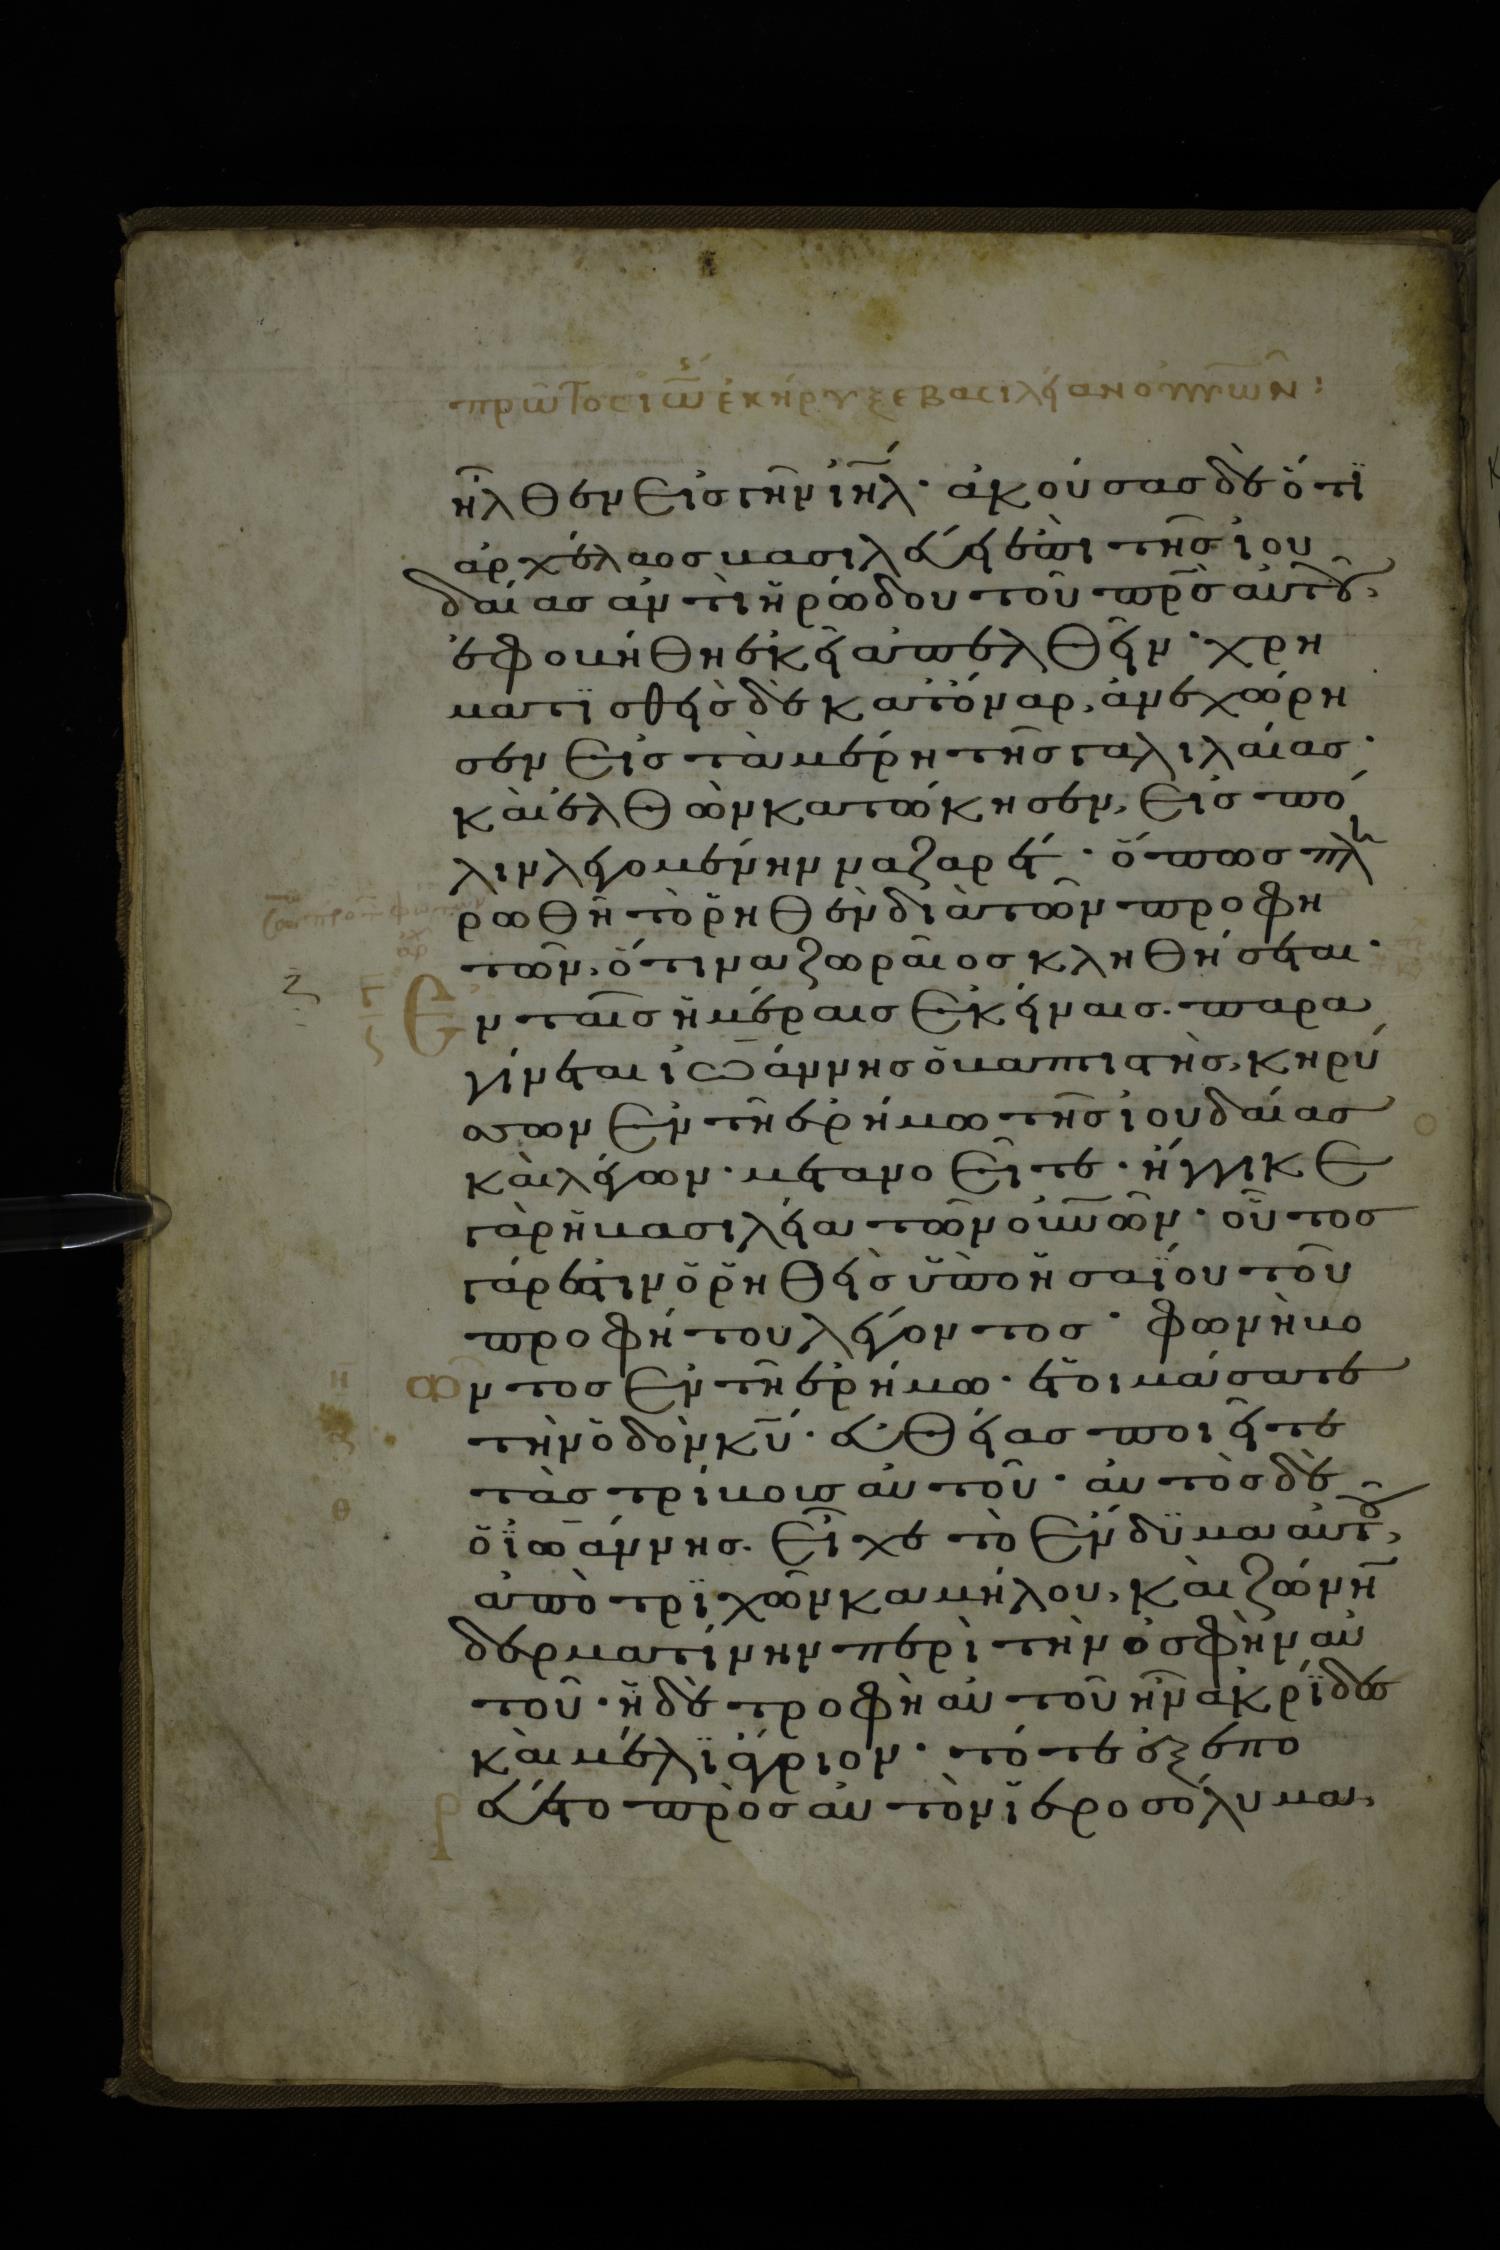 πρῶτος ἰω ἐκήρυξε βασιλείαν οὐνῶν:
ἦλθεν εἰς γῆν ἰηλ· ἀκούσας δὲ ὅτι
ἀρχέλαος βασιλεύει ἐπὶ τῆς ἰου
δαίας ἀντὶ ἡρώδου τοῦ πρς αὐτοῦ,
ἐφοβήθη ἐκεῖ ἀπελθεῖν· χρη
ματισθεὶς δὲ κατόναρ, ἀνεχώρη
σεν εἰς τὰ μέρη τῆς γαλιλαίας·
καὶ ἐλθὼν κατώκησεν, εἰς πό
λιν λεγομένην ναζαρέτ· ὅπως πλη
ρωθῆ τὸ ῥηθὲν διὰ τῶν προφη
τῶν, ὅτι ναζωραῖος κληθήσεται·
ζ Γ Ἐν ταῖς ἡμέραις ἐκείναις. παρα
γίνεται ἰωάννης ὁ βαπτιστὴς, κηρύ
σσων ἐν τῆ ἐρήμω τῆς ἰουδαίας
καὶ λέγων· μετανοεῖτε· ἤγγικε
γὰρ ἡ βασιλεία τῶν οὐνῶν· οὗτος
γάρ ἐστιν ὁ ῥηθεὶς ὑπὸ ἡσαΐου τοῦ
προφήτου λέγοντος· φωνὴ βο
η ῶντος ἐν τῆ ἐρήμω· ἑτοιμάσατε
τὴν ὁδὸν κυ· εὐθείας ποιεῖτε
θ τὰς τρίβους αὐτοῦ· αὐτὸς δὲ
ὁ ἰωάννης. εἶχε τὸ ἔνδυμα αὐτοῦ,
ἀπὸ τριχῶν καμήλου, καὶ ζώνην
δερματίνην περὶ τὴν ὀσφὴν αὐ
τοῦ· ἡ δὲ τροφὴ αὐτοῦ ἦν ἀκρίδες
καὶ μέλι ἄγριον· τότε ἐξεπο
ρεύετο πρὸς αὐτὸν ἱεροσόλυμα,